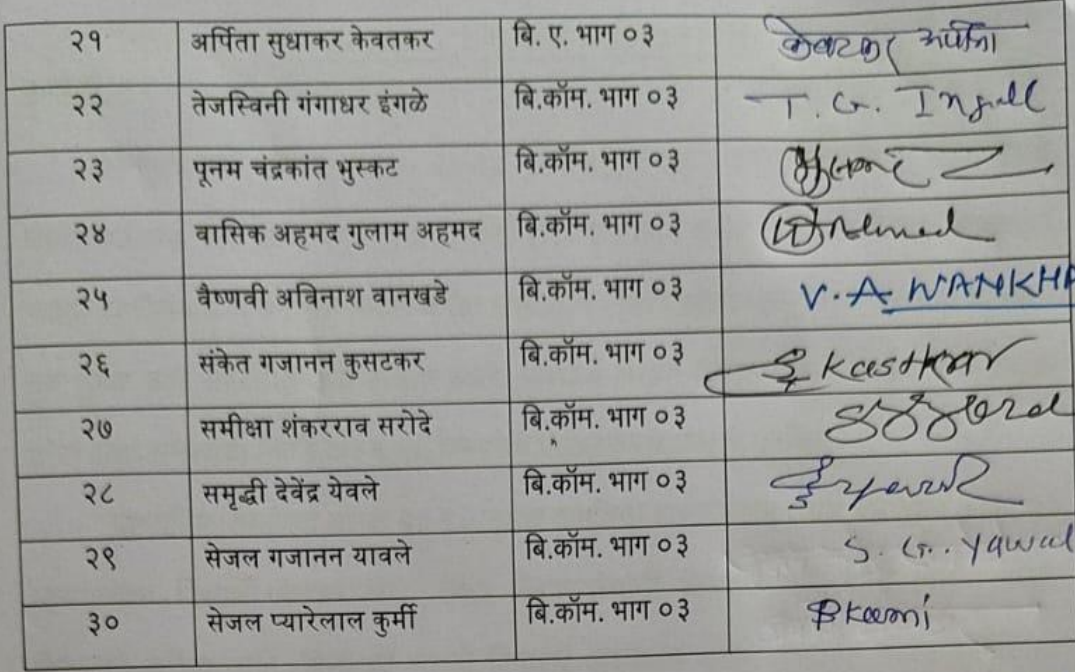 २१ अर्पिता सुधाकर केवतकर बि. ए. भाग ०३ केवटकर अर्पिता
२२ तेजस्विनी गंगाधर इंगळे बि.कॉम. भाग ०३ T. G. Ingall
२३ पूनम चंद्रकांत भुस्कट बि.कॉम. भाग ०३
२४ वासिक अहमद गुलाम अहमद बि.कॉम. भाग ०३ Ahmed
२५ वैष्णवी अविनाश वानखडे बि.कॉम. भाग ०३ V. A WANKHA
२६ संकेत गजानन कुसटकर बि.कॉम. भाग ०३ Kastkar
२७ समीक्षा शंकरराव सरोदे बि.कॉम. भाग ०३
२८ समृद्धी देवेंद्र येवले बि.कॉम. भाग ०३
२९ सेजल गजानन यावले बि.कॉम. भाग ०३ S. G. Yawal
३० सेजल प्यारेलाल कुर्मी बि.कॉम. भाग ०३